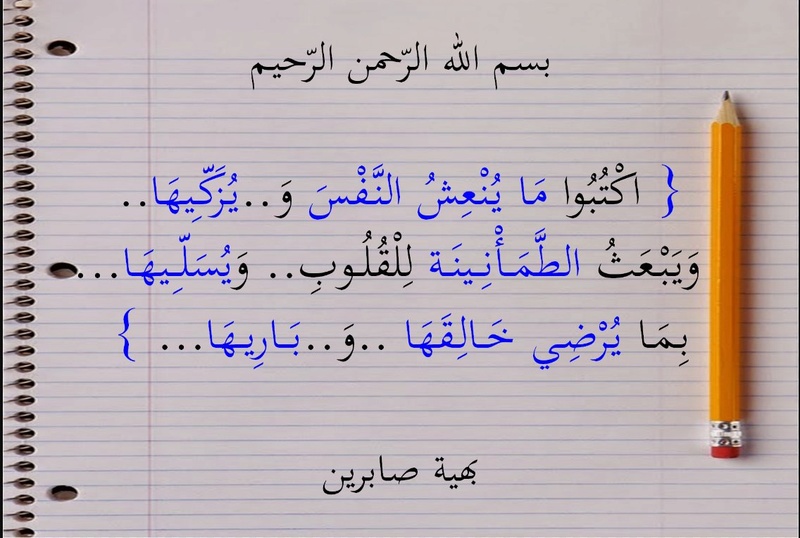 بسم الله الرّحمن الرّحيم
{ اكْتُبُوا مَا يُنْعِشُ النَّفْسَ وَ..يُزَكّـِيهَا..
وَيَبْعَثُ الطَّمَـأْنِـينَـة لِلْقُلُـوبِ.. وَيُسَلّـِيهَـا...
بِمَا يُرْضِي خَـالِقَهَا ..وَ..بَـارِيـهَا... }
بهية صابرين